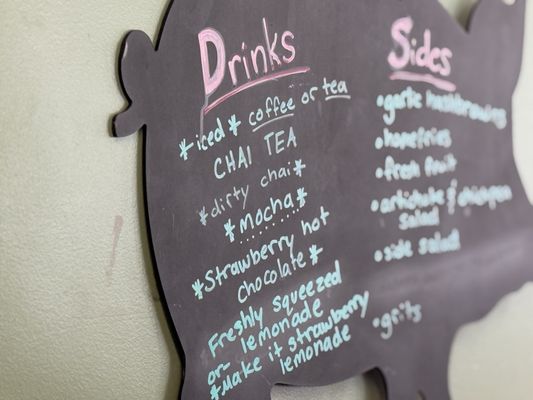 Drinks
*iced* coffee or tea
CHAI TEA
*dirty chai*
*Mocha*
*Strawberry hot
chocolate*
Freshly squeezed
or- lemonade
*Make it strawberry
lemonade
Sides
•garlic hashbrowns
•homefries
•fresh fruit
•artichoke & chickpea
salad
•side salad
•grits